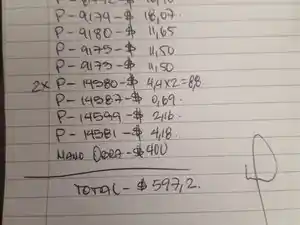 P-9179-$ 18,07.
P-9180-$ 11,65
P-9175-$ 11,50
P-9173-$ 11,50
2x P-14580-$ 4,4x2=8,8
P-14587-$ 0,69.
P-14599-$ 2,16.
P-14581-$ 4,18.
MANO OBRA-$400
TOTAL-$597,2.